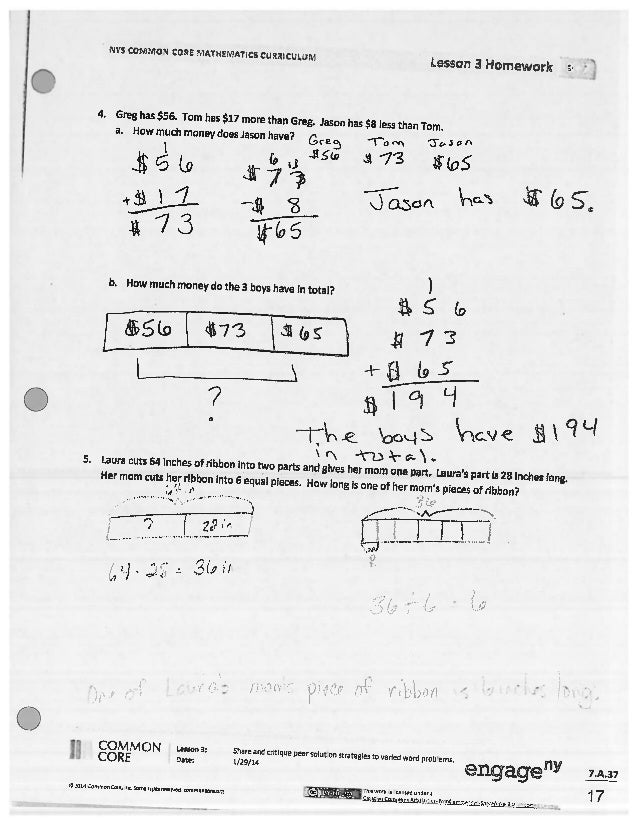 NYS COMMON CORE MATHEMATICS CURRICULUM
Lesson 3 Homework
4. Greg has $56. Tom has $17 more than Greg. Jason has $8 less than Tom.
a. How much money does Jason have?
Greg Tom Jason
$56 $73 $65
1
$56
+$17
$73
6 13
$73
-$8
$65
Jason has $65.
b. How much money do the 3 boys have in total?
$56 $73 $65
?
1
$56
$73
+$65
$194
The boys have $194
in total.
5. Laura cuts 64 inches of ribbon into two parts and gives her mom one part. Laura's part is 28 inches long.
Her mom cuts her ribbon into 6 equal pieces. How long is one of her mom's pieces of ribbon?
64 in
? 28 in
64 - 28 = 36 in
36
?
36 ÷ 6 = 6
One of Laura's mom's piece of ribbon is 6 inches long.
COMMON
CORE
Lesson 3:
Date:
Share and critique peer solution strategies to varied word problems.
1/29/14
engage ny
7.A.37
17
© 2014 Common Core, Inc. Some rights reserved. commoncore.org
This work is licensed under a